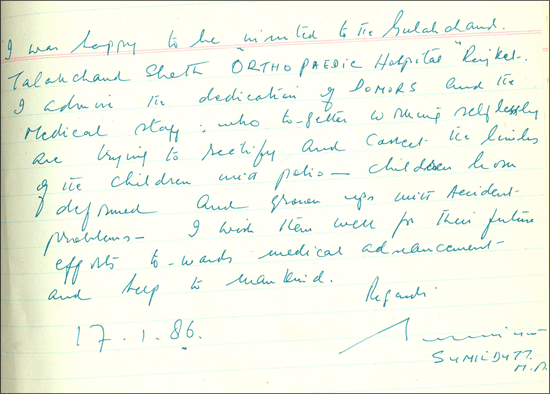 I was happy to be invited to the Gulabchand.
Talakchand Sheth "ORTHOPAEDIC Hospital" Rajkot.
I admire the dedication of DONORS and the
Medical staff, who to-gether working selflessly
are trying to rectify and correct the limbs
of the children with polio – children born
deformed and grown ups with Accident-
problems – I wish them well for their future
efforts to-wards medical advancement-
and help to mankind.
Regards.
17.1.86.
SUNILDUTT.
M.P.